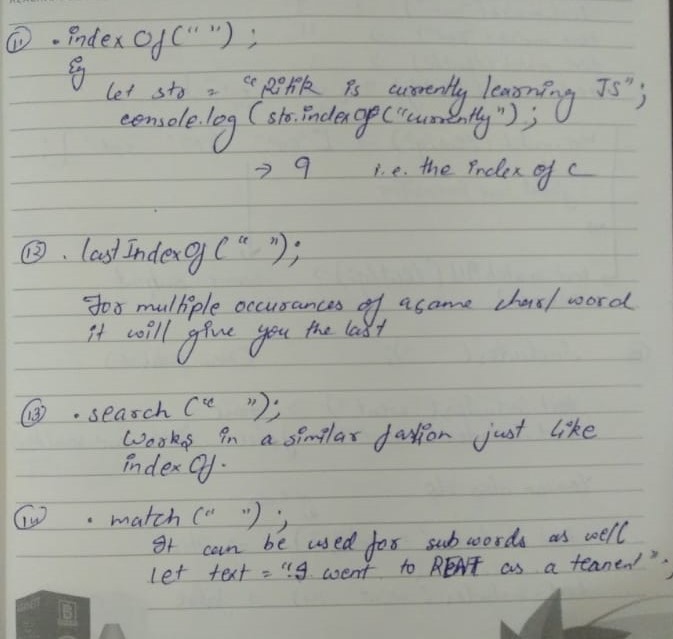 11 . index Of (" ") ;
Eg
let str = "Ritik is currently learning JS";
console.log (str.index of ("currently") ;
→ 9 i.e. the index of c
12 . last Index Of (" ");
For multiple occurances of a same char/word
it will give you the last
13 . search (" ");
Works in a similar fastion just like
index Of.
14 . match (" ") ;
It can be used for sub words as well
let text = "I went to RENT as a
B